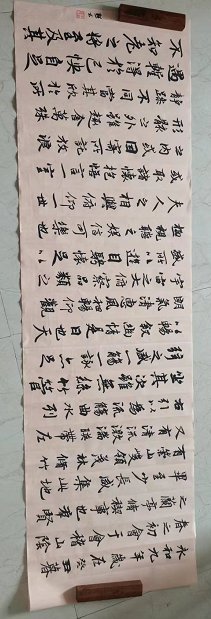 永和九年歲在癸丑暮
春之初會于會稽山陰
之蘭亭脩禊事也羣賢
畢至少長咸集此地
有崇山峻領茂林脩竹
又有清流激湍映帶左
右引以為流觴曲水列
坐其次雖無絲竹管
弦之盛一觴一詠亦足
以暢敘幽情是日也天
朗氣清惠風和暢仰觀
宇宙之大俯察品類之
盛所以遊目騁懷足以
極視聽之娛信可樂也
夫人之相與俯仰一世
或取諸懷抱悟言一室
之內或因寄所託放浪
形骸之外雖趣舍萬殊
靜躁不同當其欣於所
遇暫得於己快然自足
不知老之將至及其